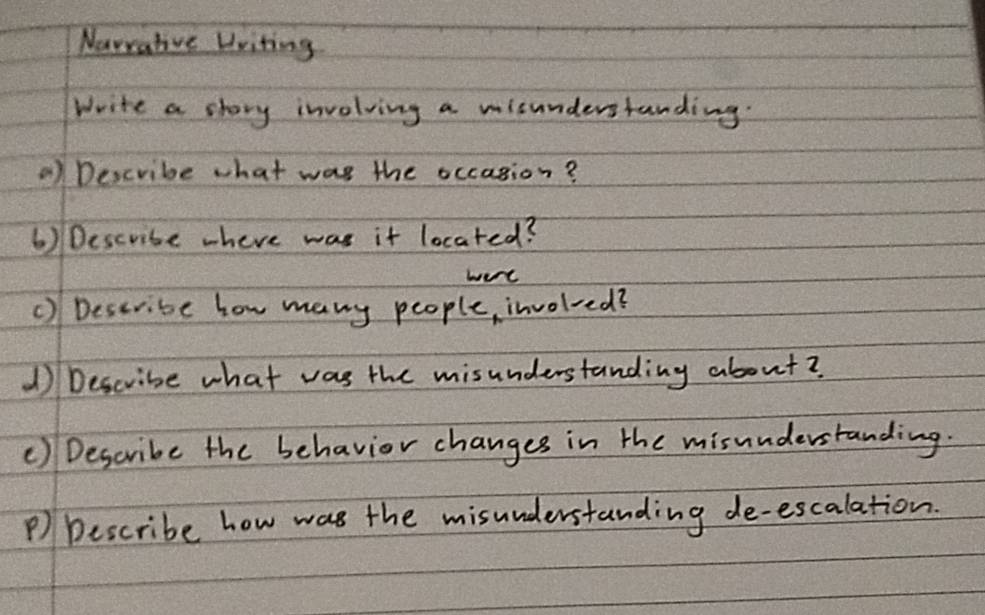 Narrative Writing
Write a story involving a misunderstanding.
a) Describe what was the occasion?
b) Describe where was it located?
were
c) Describe how many people, involved?
d) Describe what was the misunderstanding about?
e) Describe the behavior changes in the misunderstanding.
P) Describe how was the misunderstanding de-escalation.